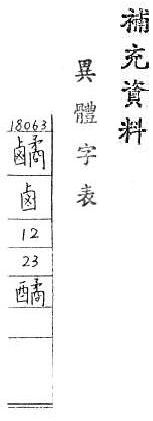 補充資料
異體字表
18063
鹵
12
23
䤎